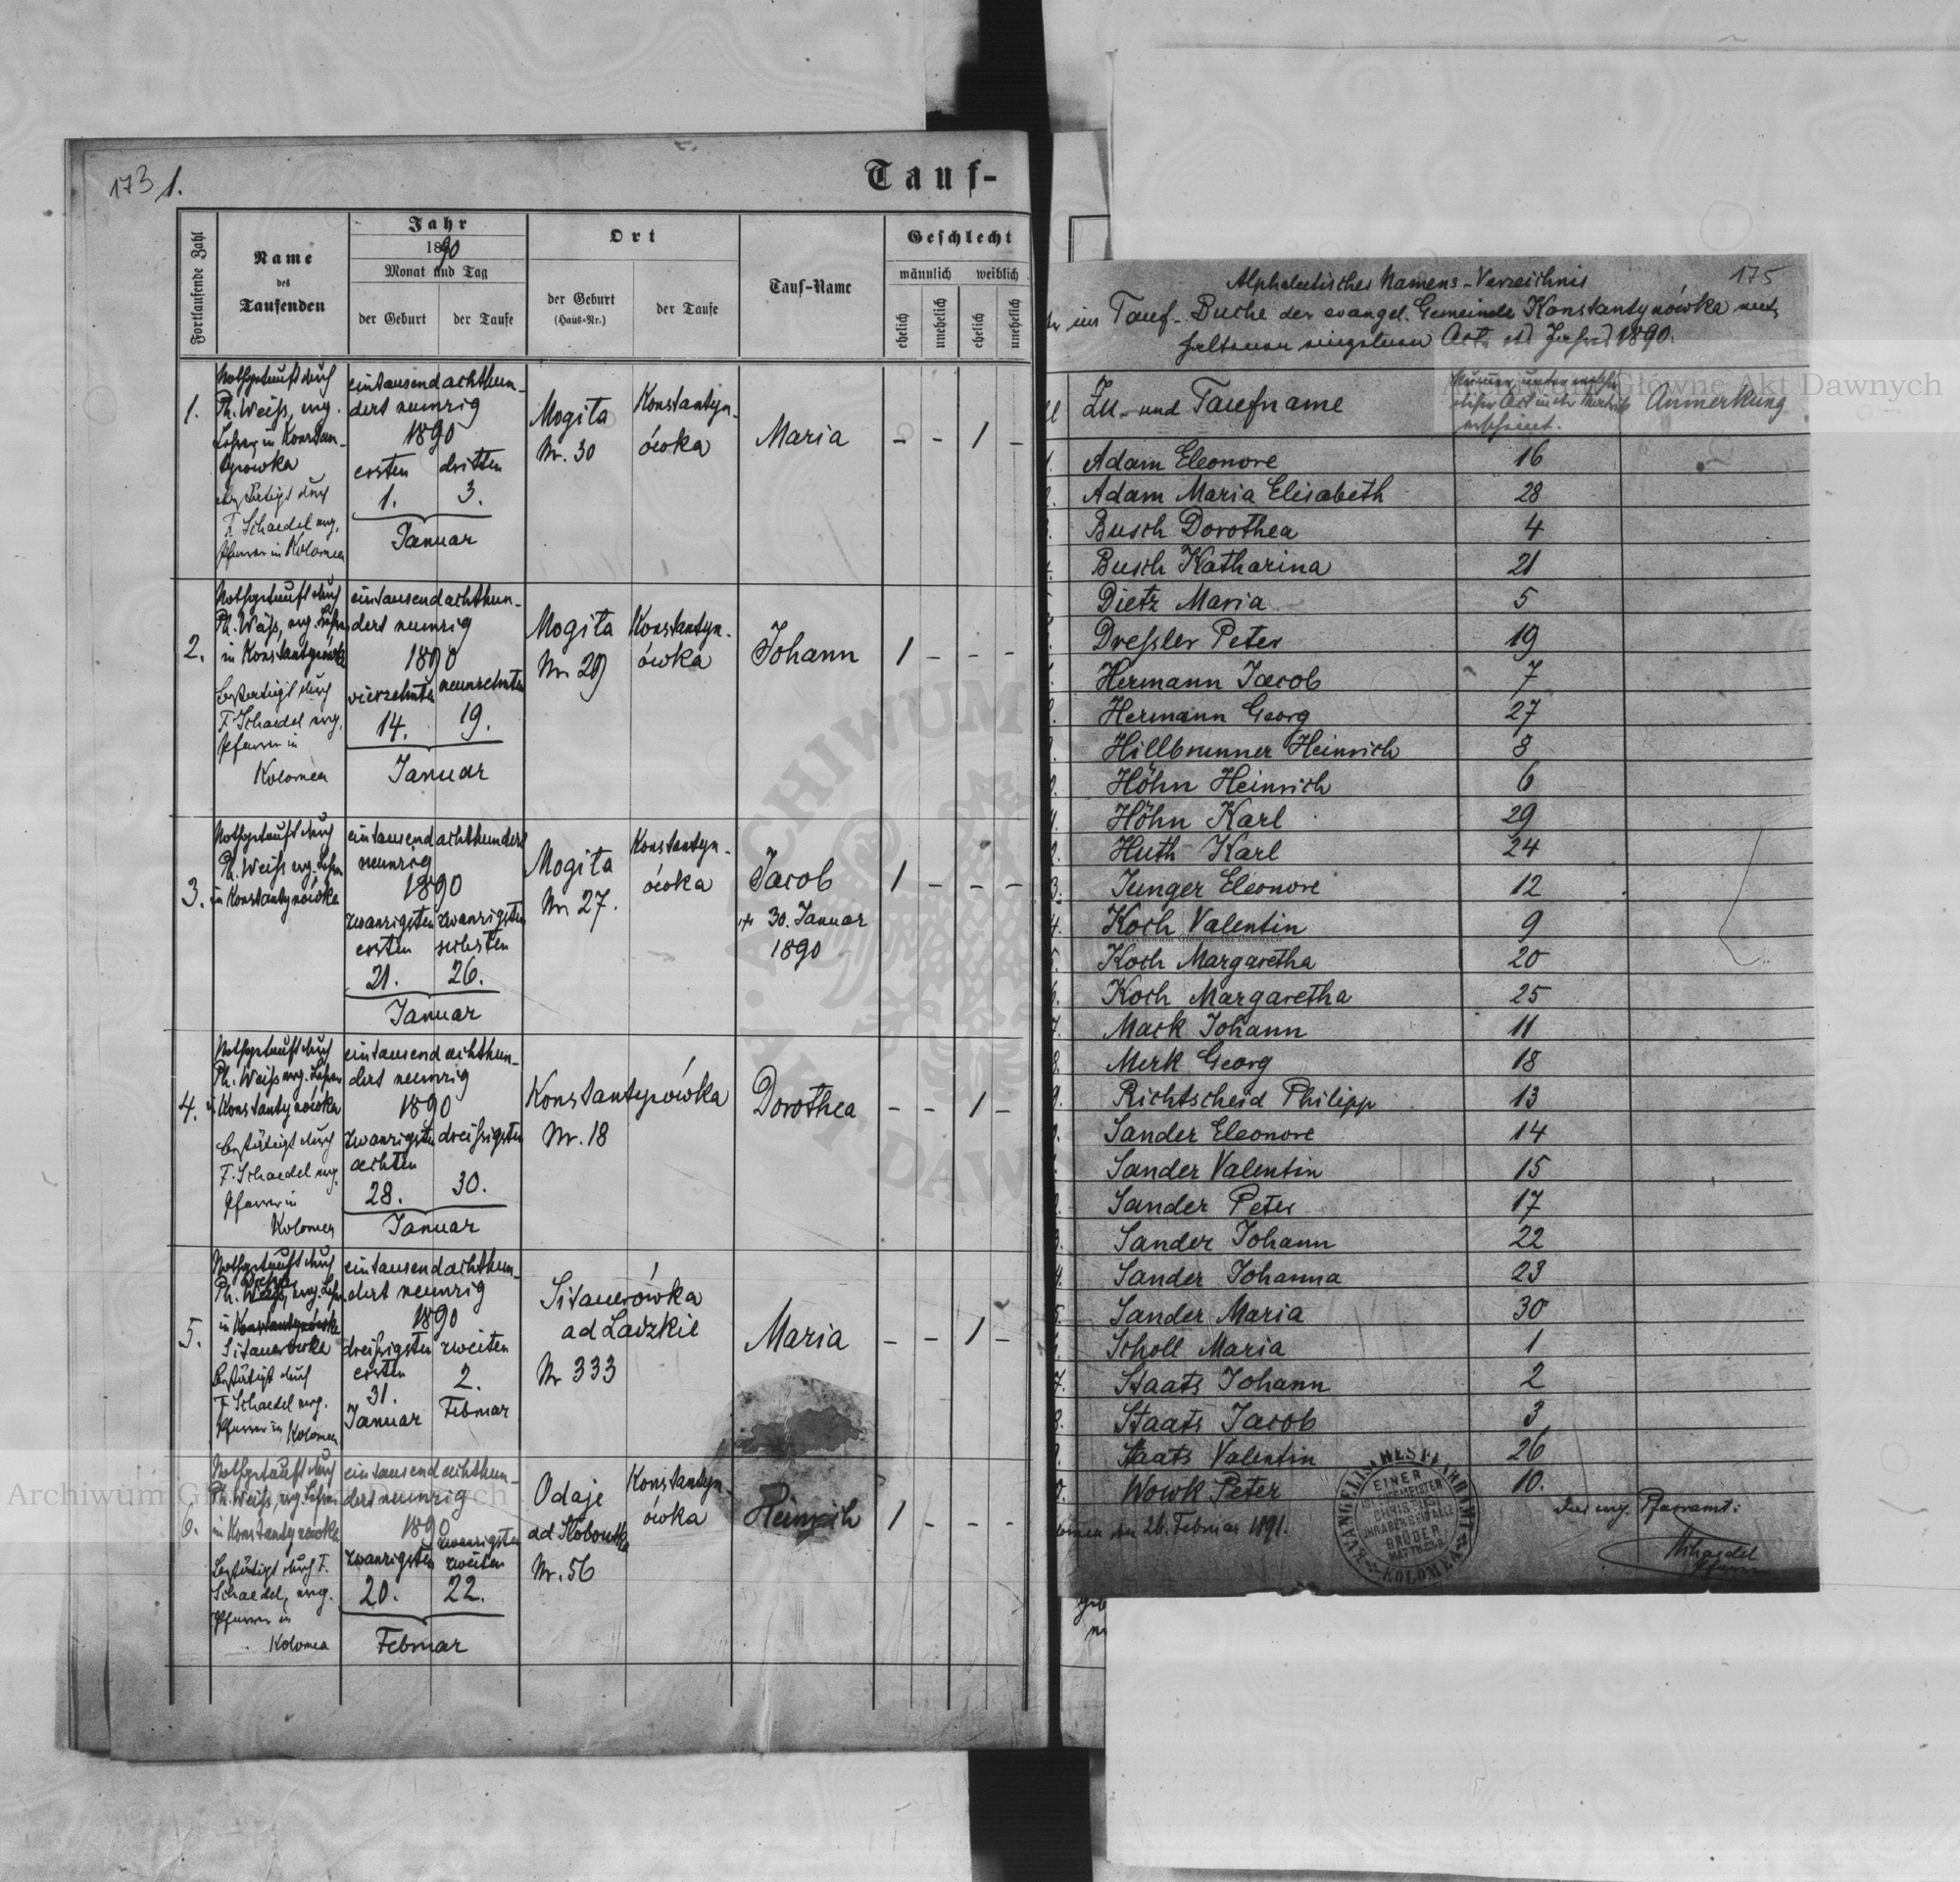 173
1.
Tauf-
Fortlaufende Zahl
Name
des
Taufenden
Jahr
1890
Monat und Tag
der Geburt
der Taufe
Ort
der Geburt
(Haus-Nr.)
der Taufe
Tauf-Name
Geschlecht
männlich
weiblich
ehelich
unehelich
ehelich
unehelich
1.
Nothgetauft durch
Ph. Weiß, evg.
Lehrer in Konstan-
tynowka
bestätigt durch
F. Schaedel evg.
Pfarrer in Kolomea
eintausend achthun-
dert neunzig
1890
ersten
1.
dritten
3.
Januar
Mogita
Nr. 30
Konstantyn-
ówka
Maria
- - 1 -
2.
Nothgetauft durch
Ph. Weiß, evg. Lehrer
in Konstantynówka
bestätigt durch
F. Schaedel evg.
Pfarrer in
Kolomea
eintausend achthun-
dert neunzig
1890
vierzehnten
14.
neunzehnten
19.
Januar
Mogita
Nr. 29
Konstantyn-
ówka
Johann
1 - - -
3.
Nothgetauft durch
Ph. Weiß evg. Lehrer
in Konstantynówka
eintausend achthundert
neunzig
1890
zwanzigsten
ersten
21.
zwanzigsten
sechsten
26.
Januar
Mogita
Nr. 27.
Konstantyn-
ówka
Jacob
30. Januar
1890
1 - - -
4.
Nothgetauft durch
Ph. Weiß evg. Lehrer
in Konstantynówka
bestätigt durch
F. Schaedel evg.
Pfarrer in
Kolomea
eintausend achthun-
dert neunzig
1890
zwanzigsten
achten
28.
dreißigsten
30.
Januar
Konstantynówka
Nr. 18
Dorothea
- - 1 -
5.
Nothgetauft durch
Ph. evg. Lehrer
in Konstantynówka
Sitauerówka
bestätigt durch
F. Schaedel evg.
Pfarrer in Kolomea
eintausend achthun-
dert neunzig
1890
dreißigsten
ersten
31.
Januar
zweiten
2.
Februar
Sitauerówka
ad Ladzkie
Nr 333
Maria
- - 1 -
6.
Nothgetauft durch
Ph. Weiß, evg. Lehrer
in Konstantynówka
bestätigt durch F.
Schaedel, evg.
Pfarrer in
Kolomea
eintausend achthun-
dert neunzig
1890
zwanzigsten
20.
zwanzigsten
zweiten
22.
Februar
Odaje
ad Slobodka
Nr. 56
Konstantyn-
ówka
Heinrich
1 - - -
175
Alphabetisches Namens-Verzeichnis
der im Tauf-Buche der evangel. Gemeinde Konstantynówka ent-
haltenen einzelnen Acte des Jahres 1890.
Zu- und Taufname
Nummer, unter welcher
dieser Act in der Matrik
erscheint.
Anmerkung
Adam Eleonore 16
Adam Maria Elisabeth 28
Busch Dorothea 4
Busch Katharina 21
Dietz Maria 5
Dreßler Peter 19
Hermann Jacob 7
Hermann Georg 27
Hillbrunner Heinrich 8
Höhn Heinrich 6
Höhn Karl 29
Huth Karl 24
Junger Eleonore 12
Koch Valentin 9
Koch Margaretha 20
Koch Margaretha 25
Mack Johann 11
Merk Georg 18
Richtscheid Philipp 13
Sander Eleonore 14
Sander Valentin 15
Sander Peter 17
Sander Johann 22
Sander Johanna 23
Sander Maria 30
Scholl Maria 1
Staats Johann 2
Staats Jacob 3
Staats Valentin 26
Wowk Peter 10.
Kolomea den 26. Februar 1891.
Das evg. Pfarramt:
Schaedel
Pfarrer
EVANGELISCHES PFARRAMT
KOLOMEA
EINER IST EUER MEISTER
CHRISTUS
IHR ABER SEID ALLE
BRÜDER
MATTH.23.8
Archiwum Główne Akt Dawnych
Archiwum Główne Akt Dawnych
Archiwum Główne Akt Dawnych